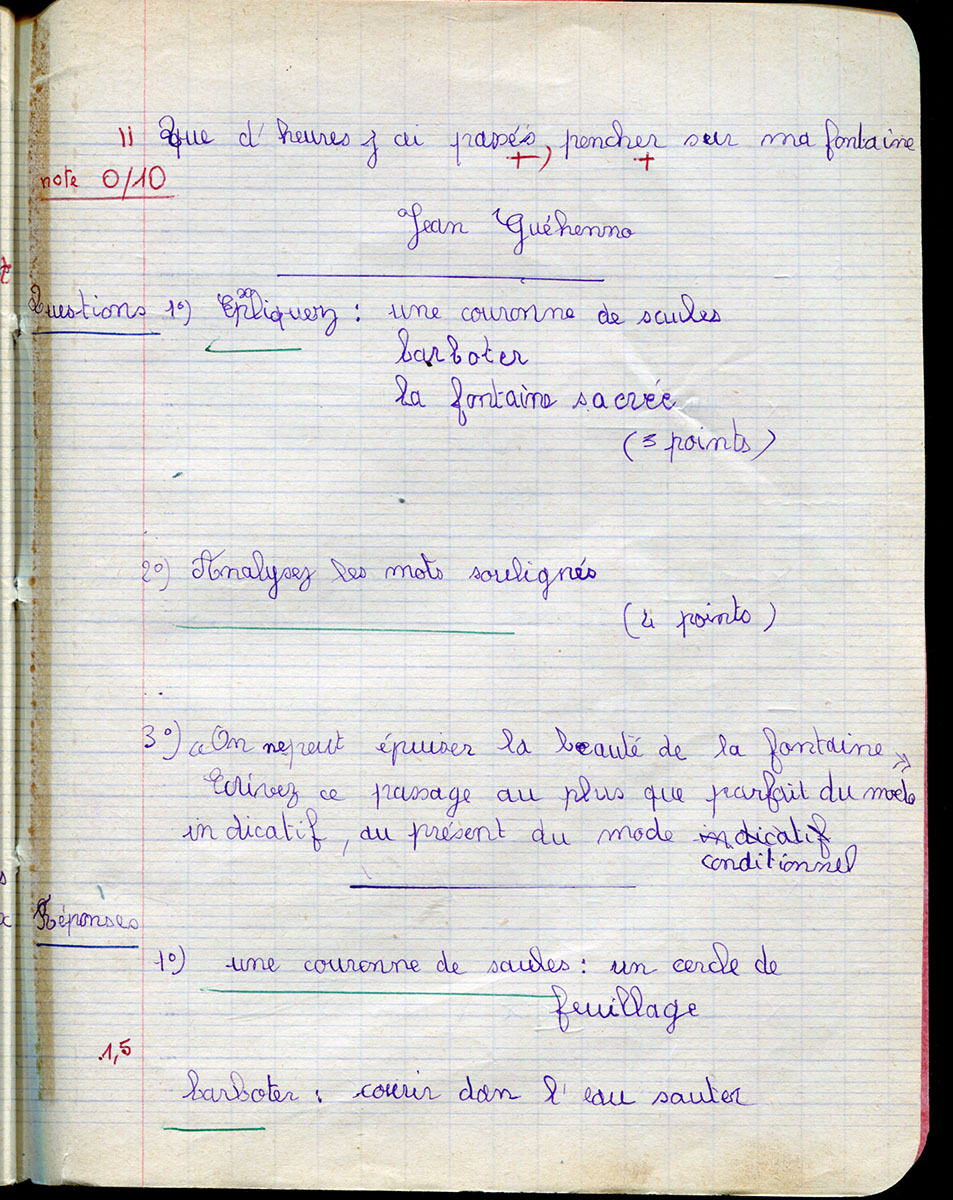 11 Que d'heures j ai passés, pencher sur ma fontaine
note 0/10
Jean Guéhenno
Questions 1°) Expliquez : une couronne de saules
barboter
la fontaine sacrée
(3 points)
2°) Analysez les mots soulignés
(4 points)
3°) « On ne peut épuiser la beauté de la fontaine »
Ecrivez ce passage au plus que parfait du mode
indicatif, au présent du mode indicatif
conditionnel
Réponses
1°) une couronne de saules : un cercle de
feuillage
1,5
barboter : courir dan l'eau sauter